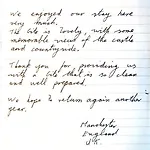 We enjoyed our stay here
very much.
The site is lovely, with some
memorable views of the castle
and countryside.
Thank you for providing us
with a site that is so clean
and well prepared.
We hope to return again another
year.
Manchester
England
UK.